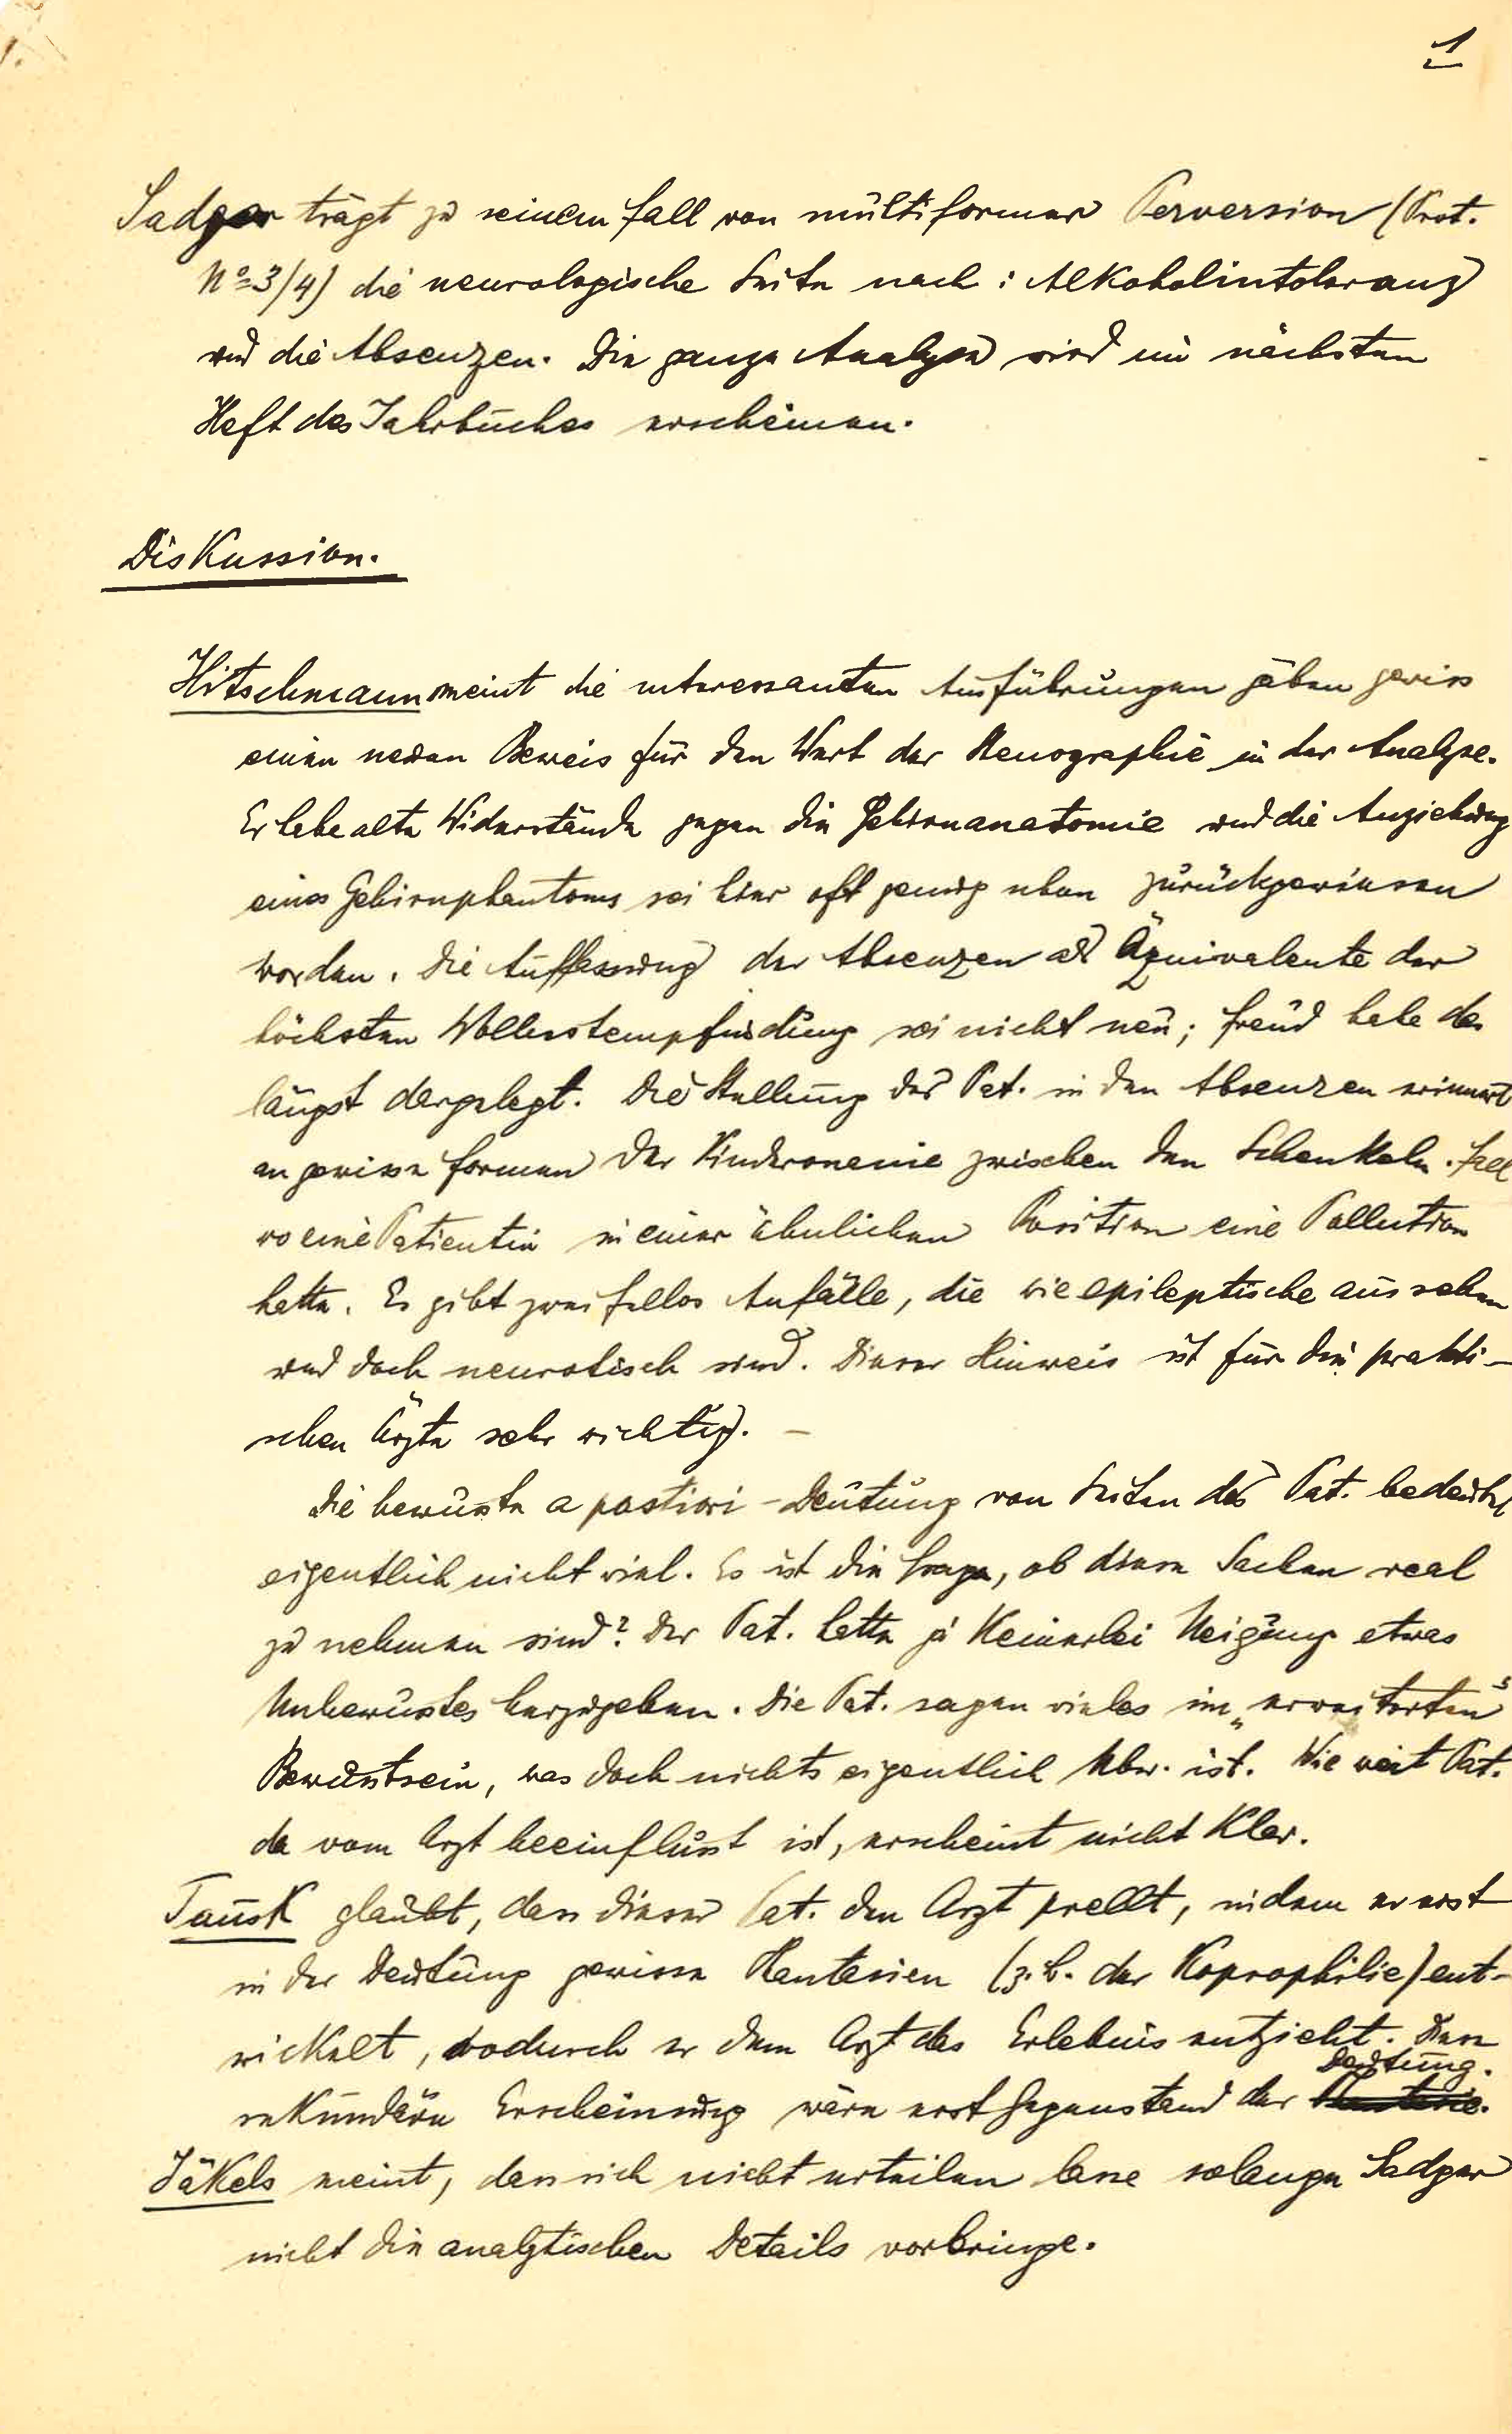 1
Sadger trägt zu seinem Fall von multiformer Perversion (Prot.
No 3/4) die neurologische Seite nach: Alkoholintoleranz
und die Absenzen. Die ganze Analyse wird im nächsten
Heft des Jahrbuches erscheinen.
Diskussion.
Hitschmann meint die interessanten Ausführungen gäben gewiss
einen neuen Beweis für den Wert der Stenographie in der Analyse.
Er habe alte Widerstände gegen die Gehirnanatomie und die Anziehung
eines Gehirnphantoms sei hier oft genug eben zurückgewiesen
worden. Die Auffassung der Absenzen als Äquivalente der
höchsten Wollustempfindung sei nicht neu; Freud habe das
längst dargelegt. Die Stellung des Pat. in den Absenzen erinnert
an gewisse Formen der Kinderonanie zwischen den Schenkeln. Fall
wo eine Patientin in einer ähnlichen Position eine Pollution
hatte. Es gibt zweifellos Anfälle, die wie epileptische aussehen
und doch neurotisch sind. Dieser Hinweis ist für die prakti-
schen Ärzte sehr wichtig. –
Die bewusste a postiori-Deutung von Seiten des Pat. bedeutet
eigentlich nicht viel. Es ist die Frage, ob diese Sachen real
zu nehmen sind? Der Pat. hatte ja keinerlei Neigung etwas
Unbewusstes herzugeben. Die Pat. sagen vieles im „erweiterten"
Bewusstsein, was doch nichts eigentlich Ubw. ist. Wie weit Pat.
da vom Arzt beeinflusst ist, erscheint nicht klar.
Tausk glaubt, dass dieser Pat. den Arzt prellt, indem er erst
in der Deutung gewisse Phantasien (z.B. der Koprophilie) ent-
wickelt, wodurch er dem Arzt das Erlebnis entzieht. Diese
sekundäre Erscheinung wäre erst Gegenstand der Deutung.
Jäkels meint, dass sich nicht urteilen lasse solange Sadger
nicht die analytischen Details vorbringe.